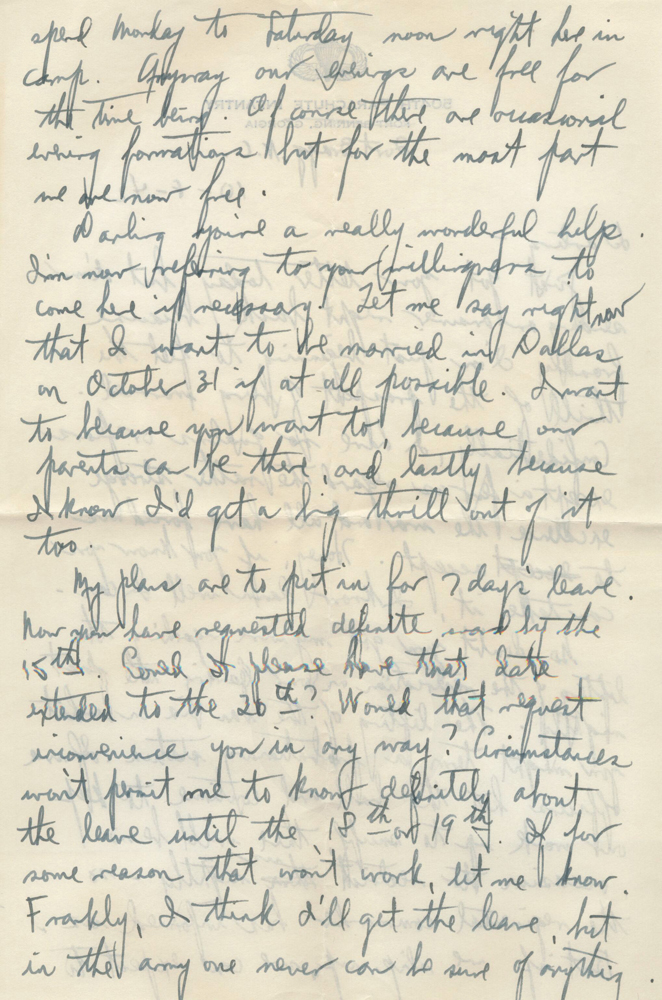 spend Monday to Saturday noon right here in
camp. Anyway our evenings are free for
the time being. Of course there are occasional
evening formations but for the most part
we are now free.
Darling you're a really wonderful help.
I'm now referring to your willingness to
come here if necessary. Let me say right now
that I want to be married in Dallas
on October 31 if at all possible. I want
to because you want to, because our
parents can be there, and lastly because
I know I'd get a big thrill out of it
too.
My plans are to put in for 7 days leave.
Now you have requested definite word by the
15th. Could I please have that date
extended to the 20th? Would that request
inconvenience you in any way? Circumstances
won't permit me to know definitely about
the leave until the 18th or 19th. If for
some reason that won't work, let me know.
Frankly, I think I'll get the leave, but
in the army one never can be sure of anything.